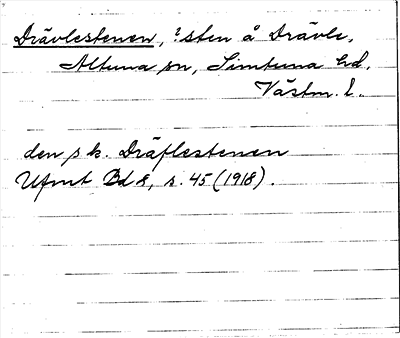 Drävlestenen, ?sten å Drävle,
Altuna sn, Simtuna hd,
Västm. l.
den s k. Dräflestenen
Ufmt Bd 8, s. 45 (1918).